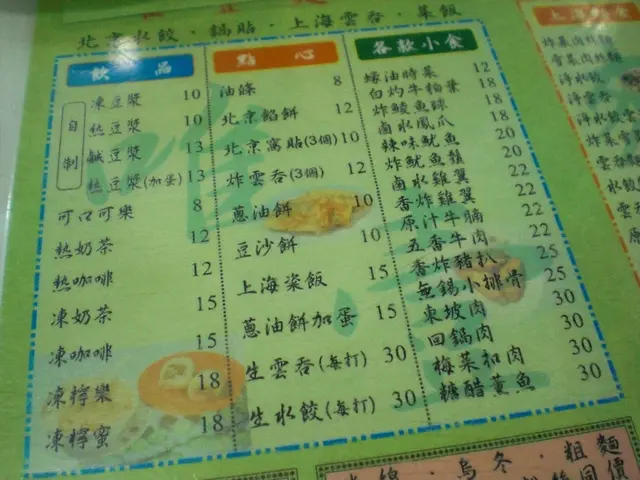 北京水餃．鍋貼．上海雲吞．菜飯
飲品
自制
凍豆漿 10
熱豆漿 10
鹹豆漿 13
熱豆漿(加蛋) 13
可口可樂 8
熱奶茶 12
熱咖啡 12
凍奶茶 15
凍咖啡 15
凍檸樂 18
凍檸蜜 18
點心
油條 8
北京餡餅 12
北京窩貼(3個) 10
炸雲吞(3個) 12
蔥油餅 10
豆沙餅 10
上海粢飯 15
蔥油餅加蛋 15
生雲吞(每打) 30
生水餃(每打) 30
各款小食
蠔油時菜 12
白灼牛柏葉 18
炸鯪魚球 18
鹵水鳳爪 18
辣味魷魚 20
炸魷魚鬚 20
鹵水雞翼 22
香炸雞翼 22
原汁牛腩 22
五香牛肉 22
香炸豬扒 22
無錫小排骨 25
東坡肉 30
回鍋肉 30
梅菜扣肉 30
糖醋薰魚 30
烏冬．粗麵